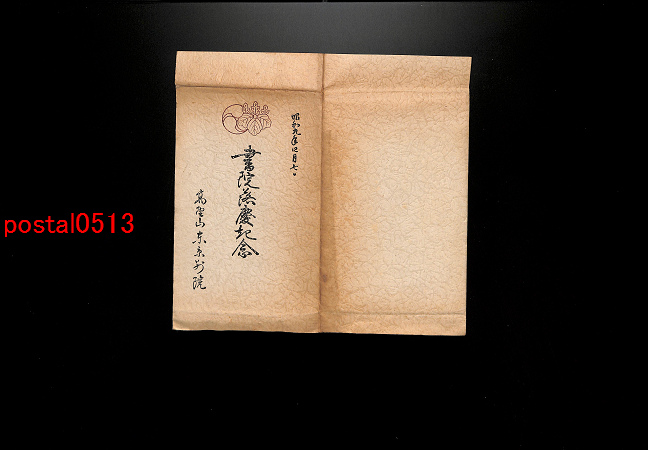 昭和九年四月七日
書院落慶記念
高野山東京別院
postal0513